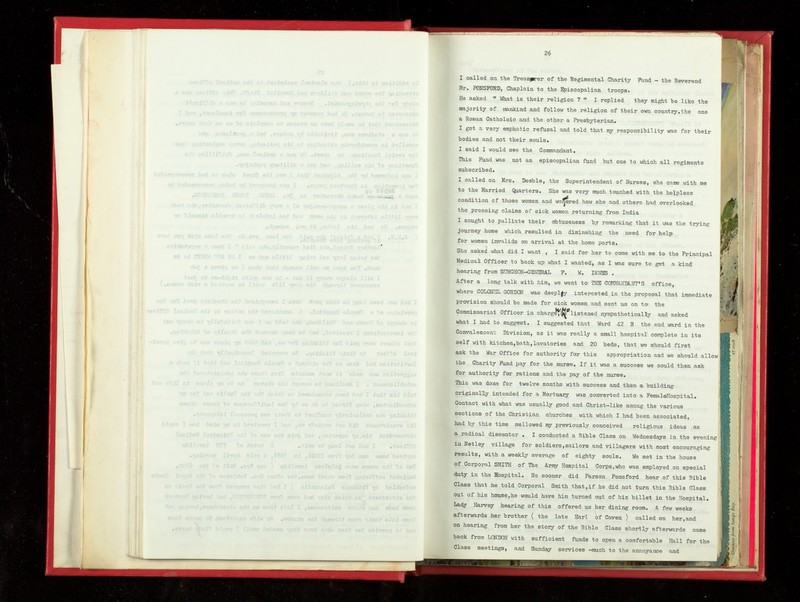 26
I called on the Treasurer of the Regimental Charity Fund - the Reverend
Mr. PONSFORD, Chaplain to the Episcopalian troops.
He asked " What is their religion ? " I replied they might be like the
majority of mankind and follow the religion of their own country.the one
a Roman Catholoic and the other a Presbyterian.
I got a very emphatic refusal and told that my responsibility was for their
bodies and not their souls.
I said I would see the Commandant.
This Fund was not an episcopalian fund but one to which all regiments
subscribed.
I called on Mrs. Deeble, the Superintendent of Nurses, who came with me
to the Married Quarters. She was very much touched with the helpless
condition of those women and wondered how she and others had overlooked
the pressing claims of sick women returning from India
I sought to palliate their obtuseness by remarking that it was the trying
journey home which resulted in diminshing the need for help
for women invalids on arrival at the home ports.
She asked what did I want , I said for her to come with me to the Principal
Medical Officer to back up what I wanted, as I was sure to get a kind
hearing from SURGEON-GENERAL F. W. INNES .
After a long talk with him, we went to THE COMMANDANT'S office,
where COLONEL GORDON was deeply interested in the proposal that immediate
provision should be made for sick women and sent us on to the
Commissariat Officer in charge, who listened sympathetically and asked
what I had to suggest. I suggested that Ward 42 B the end ward in the
Convalescent Division, as it was really a small hospital complete in its
self with kitchen,bath,lavatories and 20 beds, that we should first
ask the War Office for authority for this appropriation and we should allow
the Charity Fund pay for the nurse. If it was a success we could then ask
for authority for rations and the pay of the nurse.
This was done for twelve months with success and then a building
originally intended for a Mortuary was converted into a FemaleHospital.
Contact with what was usually good and Christ-like among the various
sections of the Christian churches with which I had been associated,
had by this time mellowed my previously conceived religious ideas as
a radical dissenter . I conducted a Bible Class on Wednesdays in the evening
in Netley village for soldiers,sailors and villagers with most encouraging
results, with a weekly average of eighty souls. We met in the house
of Corporal SMITH of The Army Hospital Corps,who was employed on special
duty in the Hospital. No sooner did Parson Ponsford hear of this Bible
Class that he told Corporal Smith that,if he did not turn this Bible Class
out of his house,he would have him turned out of his billet in the Hospital.
Lady Harvey hearing of this offered us her dining room. A few weeks
afterwards her brother ( the late Earl of Cowen ) called on her,and
on hearing from her the story of the Bible Class shortly afterwards came
back from LONDON with sufficient funds to open a comfortable Hall for the
Class meetings, and Sunday services -much to the annoyance and